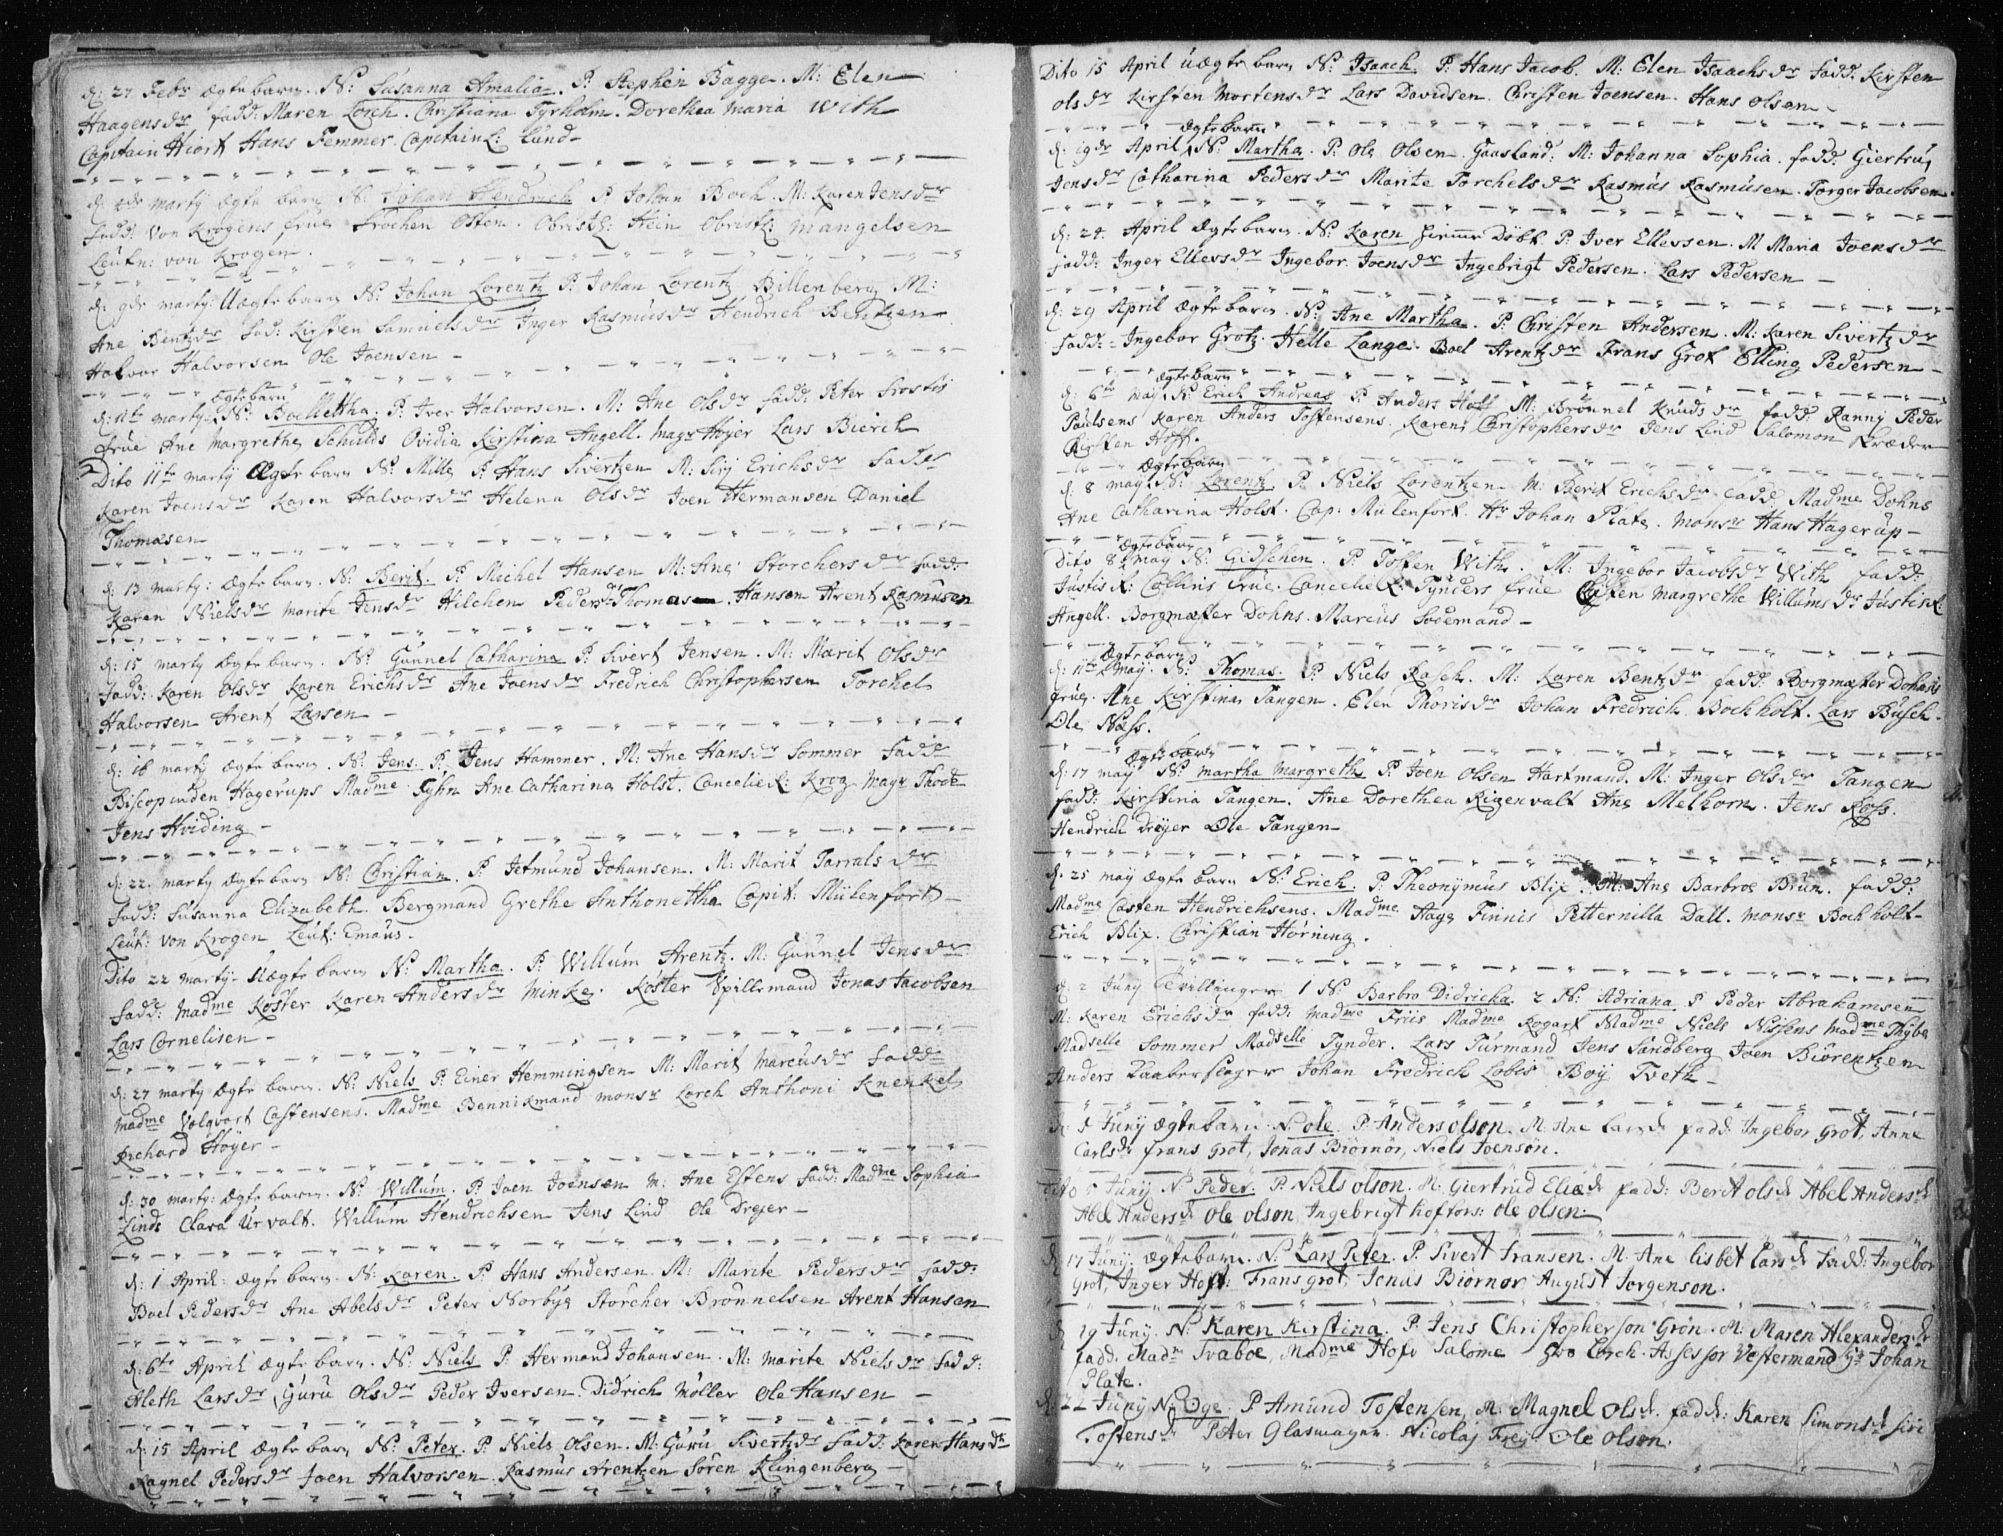 d: 27 Febr ægte barn. N: Susanna Amalia. P: Stephen Bagge. M: Elen
Haagensdr fadd: Maren Lorch. Christiana Tyrholm. Dorethea Maria With
Capitain Hiort Hans Femmer. Capitainl: Lund
marty ægte barn N: Johan Hendrich P. Johan Boch. M: Karen Jensdr
fadd: Von Krogens frue Frochen Osten. Obristl: Hein Obristl: Mangelsen
Leutn: von Krogen.
d: 9de marty: Uægte barn N: Johan Lorentz P: Johan Lorentz Billenberg M:
Ane Bentzdr fad: Kirsten Samuelsdr Inger Rasmusdr Hendrich Bentzen
Halvor Halvorsen Ole Joensen
ægte barn
d: 11te marty. N: Boelletha. P: Iver Halvorsen. M: Ane Olsdr fadd: Peter Frostis
frue Ane Margrethe Schulds Ovidia Kirstina Angell. Magr Høyer Lars Bierch
Dito 11te marty Ægte barn N: Mille P: Hans Sivertzen M: Sirj Erichsdr fadd:
Karen Joensdr Karen Halvorsdr Helena Olsdr Joen Hermansen Daniel
Thomæsen
d: 13 marty: ægte barn. N: Berit. P: Michel Hansen M: Ane Storchersdr fadd:
Karen Nielsdr Marite Jensdr Hilchen Pedersdr Thomas Hansen Arent Rasmusen
d: 15 marty ægte barn. N: Gunnel Catharina P: Sivert Jensen. M: Marit Olsdr
fadd: Karen Olsdr Karen Erichsdr Ane Joensdr Fredrich Christophersen Torchel
Halvorsen Arent Larsen
d: 16 marty ægte barn. N: Jens. P: Jens Hammer. M: Ane Hansdr Sommer fadd:
Biscopinden Hagerups Madme Tyhn Ane Catharina Holst. Cancelier: Krog Magr Thode
Jens Hviding
d: 22 marty ægte barn N: Christian. P: Jetmund Johansen. M: Marit Tarralsdr
fadd: Susanna Elizabeth Bergmand Grethe Anthonettha Capit: Mülenfort
Leut: von Krogen Leut: Emaus.
Dito 22 marty: Uægte barn N: Martha. P: Willum Arentz. M: Gunnel Jensdr
fadd: Madme Køster Karen Andersdr Minke. Køster Spillemand Jonas Jacobsen
Lars Cornelisen
d: 27 marty ægte barn. N: Niels P: Einer Hemmingsen M: Marit Marcusdr fadd:
Madme Volqvart Castensens. Madme Bennikmand Monsr Lorch Anthoni Knenkel
Richard Høyer
d: 30 marty: ægte barn. N: Willum. P: Joen Joensen M: Ane Estens fadd: Madme Sophia
Linds Clara Urvalt. Willum Hendrichsen Jens Lind Ole Dreyer
d: 1 April: ægte barn. N: Karen. P: Hans Andersen M: Marite Pedersdr fadd:
Boel Pedersdr Ane Abelsdr Peter Norbye Storcher Brønnelsen Arent Hansen
d: 6te April ægte barn. N: Niels P: Hermand Johansen. M: Marite Nielsdr fadd:
Aleth Larsdr Guru Olsdr Peder Iversen. Didrich Møller Ole Hansen
d: 15 April ægte barn N: Peter. P: Niels Olsen. M: Guru Sivertzdr fadd: Karen Hansdr
Ragnel Pedersdr Joen Halvorsen. Rasmus Arentzen Søren Klingenberg
Dito 15 April uægte barn N: Isaach P: Hans Jacob. M: Elen Isaachsdr fadd: Kirsten
Olsdr Kirsten Mortensdr Lars Davidsen. Christen Joensen. Hans Olsen
Ægte barn
d: 19de April N: Martha. P: Ole Olsen Gaasland: M: Johanna Sophia. fadd: Giertru
Jensdr Catharina Pedersdr Marite Torchelsdr Rasmus Rasmusen. Torger Jacobsen
d: 24. April Ægte barn. N: Karen hiemme døbt. P: Iver Ellevsen. M Maria Joensdr
fadd: Inger Ellevsdr Ingebor Joensdr Ingebrigt Pedersen. Lars Pedersen
d: 29 April ægte barn. N: Ane Martha. P: Christen Andersen. M: Karen Sivertzdr
fadd: Ingebor Grotz. Helle Lange. Boel Arentzdr Frans Grot Elling Pedersen
ægte barn
d: 6te may N: Erich Andreas P: Anders Hoff M: Brønnel Knudsdr fadd: Ranny Peder
Paulsens Karen Anders Tostensens. Karen Christophersdr Jens Lind Salomon Skræder
Kirsten Hoff.
Ægte barn
d: 8 may. N: Lorentz P: Niels Lorentzen. M: Berit Erichsdr fadd Madme Dohns
Ane Catharina Holst. Cap: Mülenfort. Hr Johan Plate. Monsr Hans Hagerup
Ægte barn
Dito 8 may N: Gidschen. P: Tosten With. M: Ingebor Jacobsdr With fadd:
Justis R: Collins frue. Cancelie R: Tynders frue Margrethe Willumsdr Justis R:
Angell. Borgmester Dohns. Marcus Sodemand
ægte barn
d: 11te may. N: Thomas. P: Niels Rasch. M: Karen Bentzdr fadd: Borgmester Dohns
frue. Ane Kirstina Tangen. Elen Thorisdr Johan Fredrich Bochholt. Lars Busch.
Ole Næss.
ægte barn
d: 17 may N: Martha Margreth P: Joen Olsen Hartmand. M: Inger Olsdr Tangen
fadd: Kirstina Tangen. Ane Dorethea Rigenvalt Ane Melhorn. Jens Ross.
Hendrich Dreyer Ole Tangen
d. 25 may ægte barn N: Erich. P: Theonymus Blix M: Ane Barbroe Brun. fadd:
Madme Casten Hendrichsens. Madme Hage Finnis Petternilla Dall. Monsr Bochholt
Erich Blix. Christian Hørning.
d 2 Juny Tvillinger 1 N: Barbro Didricha 2 N: Adriana P Peder Abrahamsen
M: Karen Erichsdr fadd: Madme Friis Madme Rogart Madme Niels Nissens Madme Thybe
Madselle Sommer Madselle Tynder. Lars Turmand Jens Sundberg Joen Biørentzen
Anders Johan Fredrich Lobes Boy Tveth
d: 5 Juny ægte barn N: Ole. P. Anders olson. M. Ane Larsd fadd: Ingebor Grot, Anne
Carlsd frans Grot, Jonas Biørnør, Niels Joensøn.
Dito 5 Juny. N Peder. P. Niels olson. M: Giertrud Eliæd fadd: Berit olsd Abel Andersd
Abel Andersd ole olson Ingebrigt Hoftors: ole olsen.
d 17 Juny. ægte barn. N. Lars Peter. P. Sivert Fransen. M. Ane Lisbet Larsd fadd: Ingebor
Grot, Inger Hoft: Frans grot, Jonas Biørnør August Jorgenson.
d 19 Juny. N: Karen Kirstina. P. Jens Christopherson Grøn. M: Maren Alexandersd
fadd. Madm Tvaboe, Madme Hofv Salome Lorch. Assessor Vestermand Johan
Plate.
d. 22 Juny N: Oge. P Amund Tostensen, M: Magnel Olsd. fadd: Karen Simonsd siri
Tostensd Peter Glasmager. Nicolaj Frey. Ole olson.